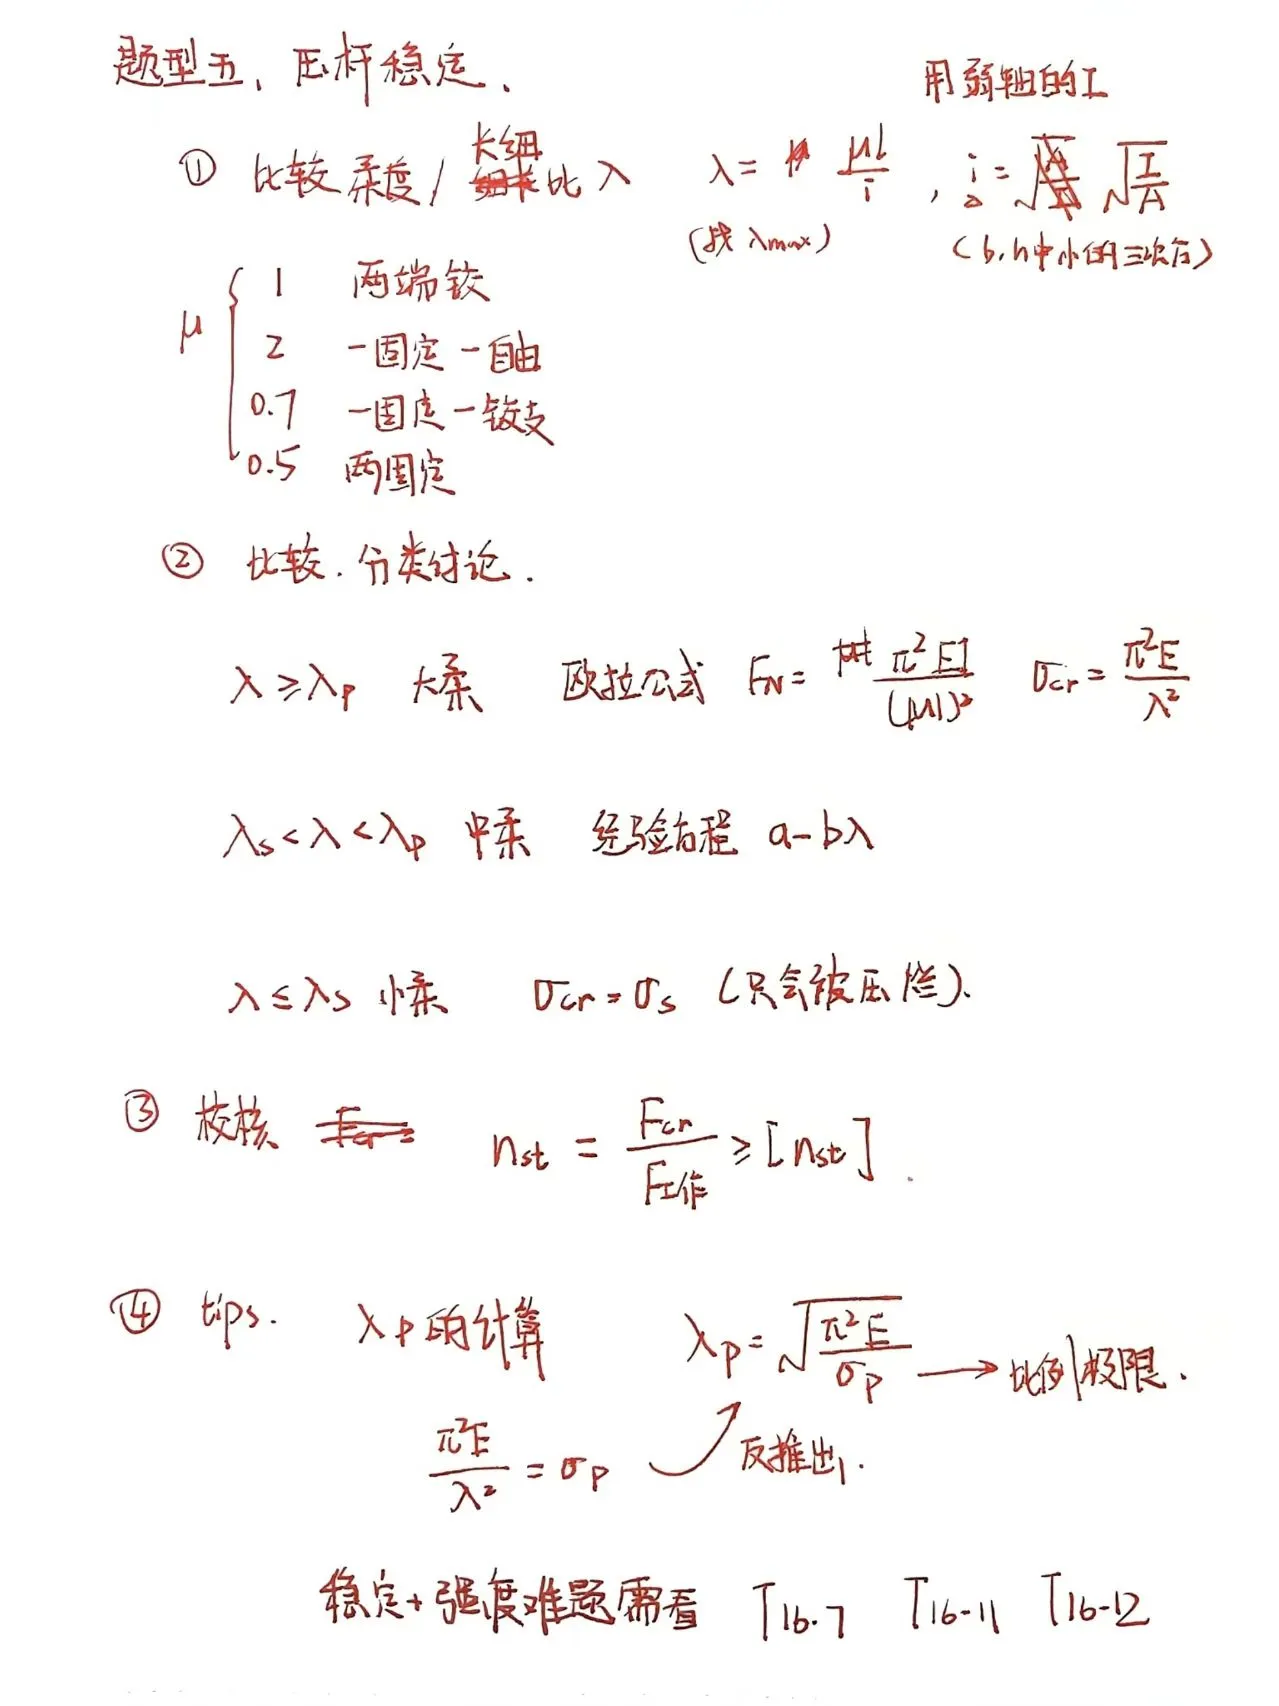 题型五、压杆稳定.
用弱轴的I
① 比较柔度/长细比λ λ= μl/i , i=√(I/A)
(找λmax) (b,h中小的三次方)
μ { 1 两端铰
2 一固定一自由
0.7 一固定一铰支
0.5 两固定
② 比较.分类讨论.
λ≥λp 大柔 欧拉公式 FN= π²EI/(μl)² σcr= π²E/λ²
λs<λ<λp 中柔 经验方程 a-bλ
λ≤λs 小柔 σcr=σs (只会被压烂).
③ 校核 nst = Fcr/F工作 ≥[nst]
④ tips. λp的计算 λp=√(π²E/σp) → 比例极限.
π²E/λ² = σp 反推出,.
稳定+强度难题需看 T16.7 T16-11 T16-12